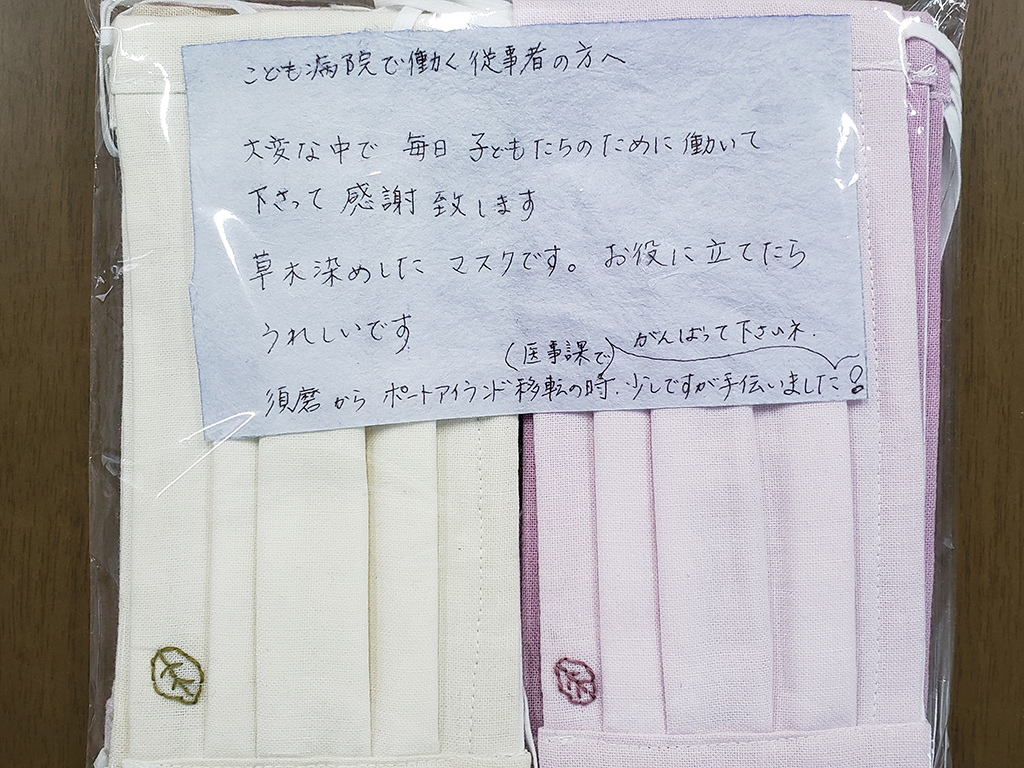 こども病院で働く従事者の方へ
大変な中で 毎日 子どもたちのために働いて
下さって 感謝 致します
草木染めした マスクです。お役に立てたら
うれしいです
(医事課で)
がんばって下さいネ.
須磨から ポートアイランド移転の時.少しですが手伝いました!